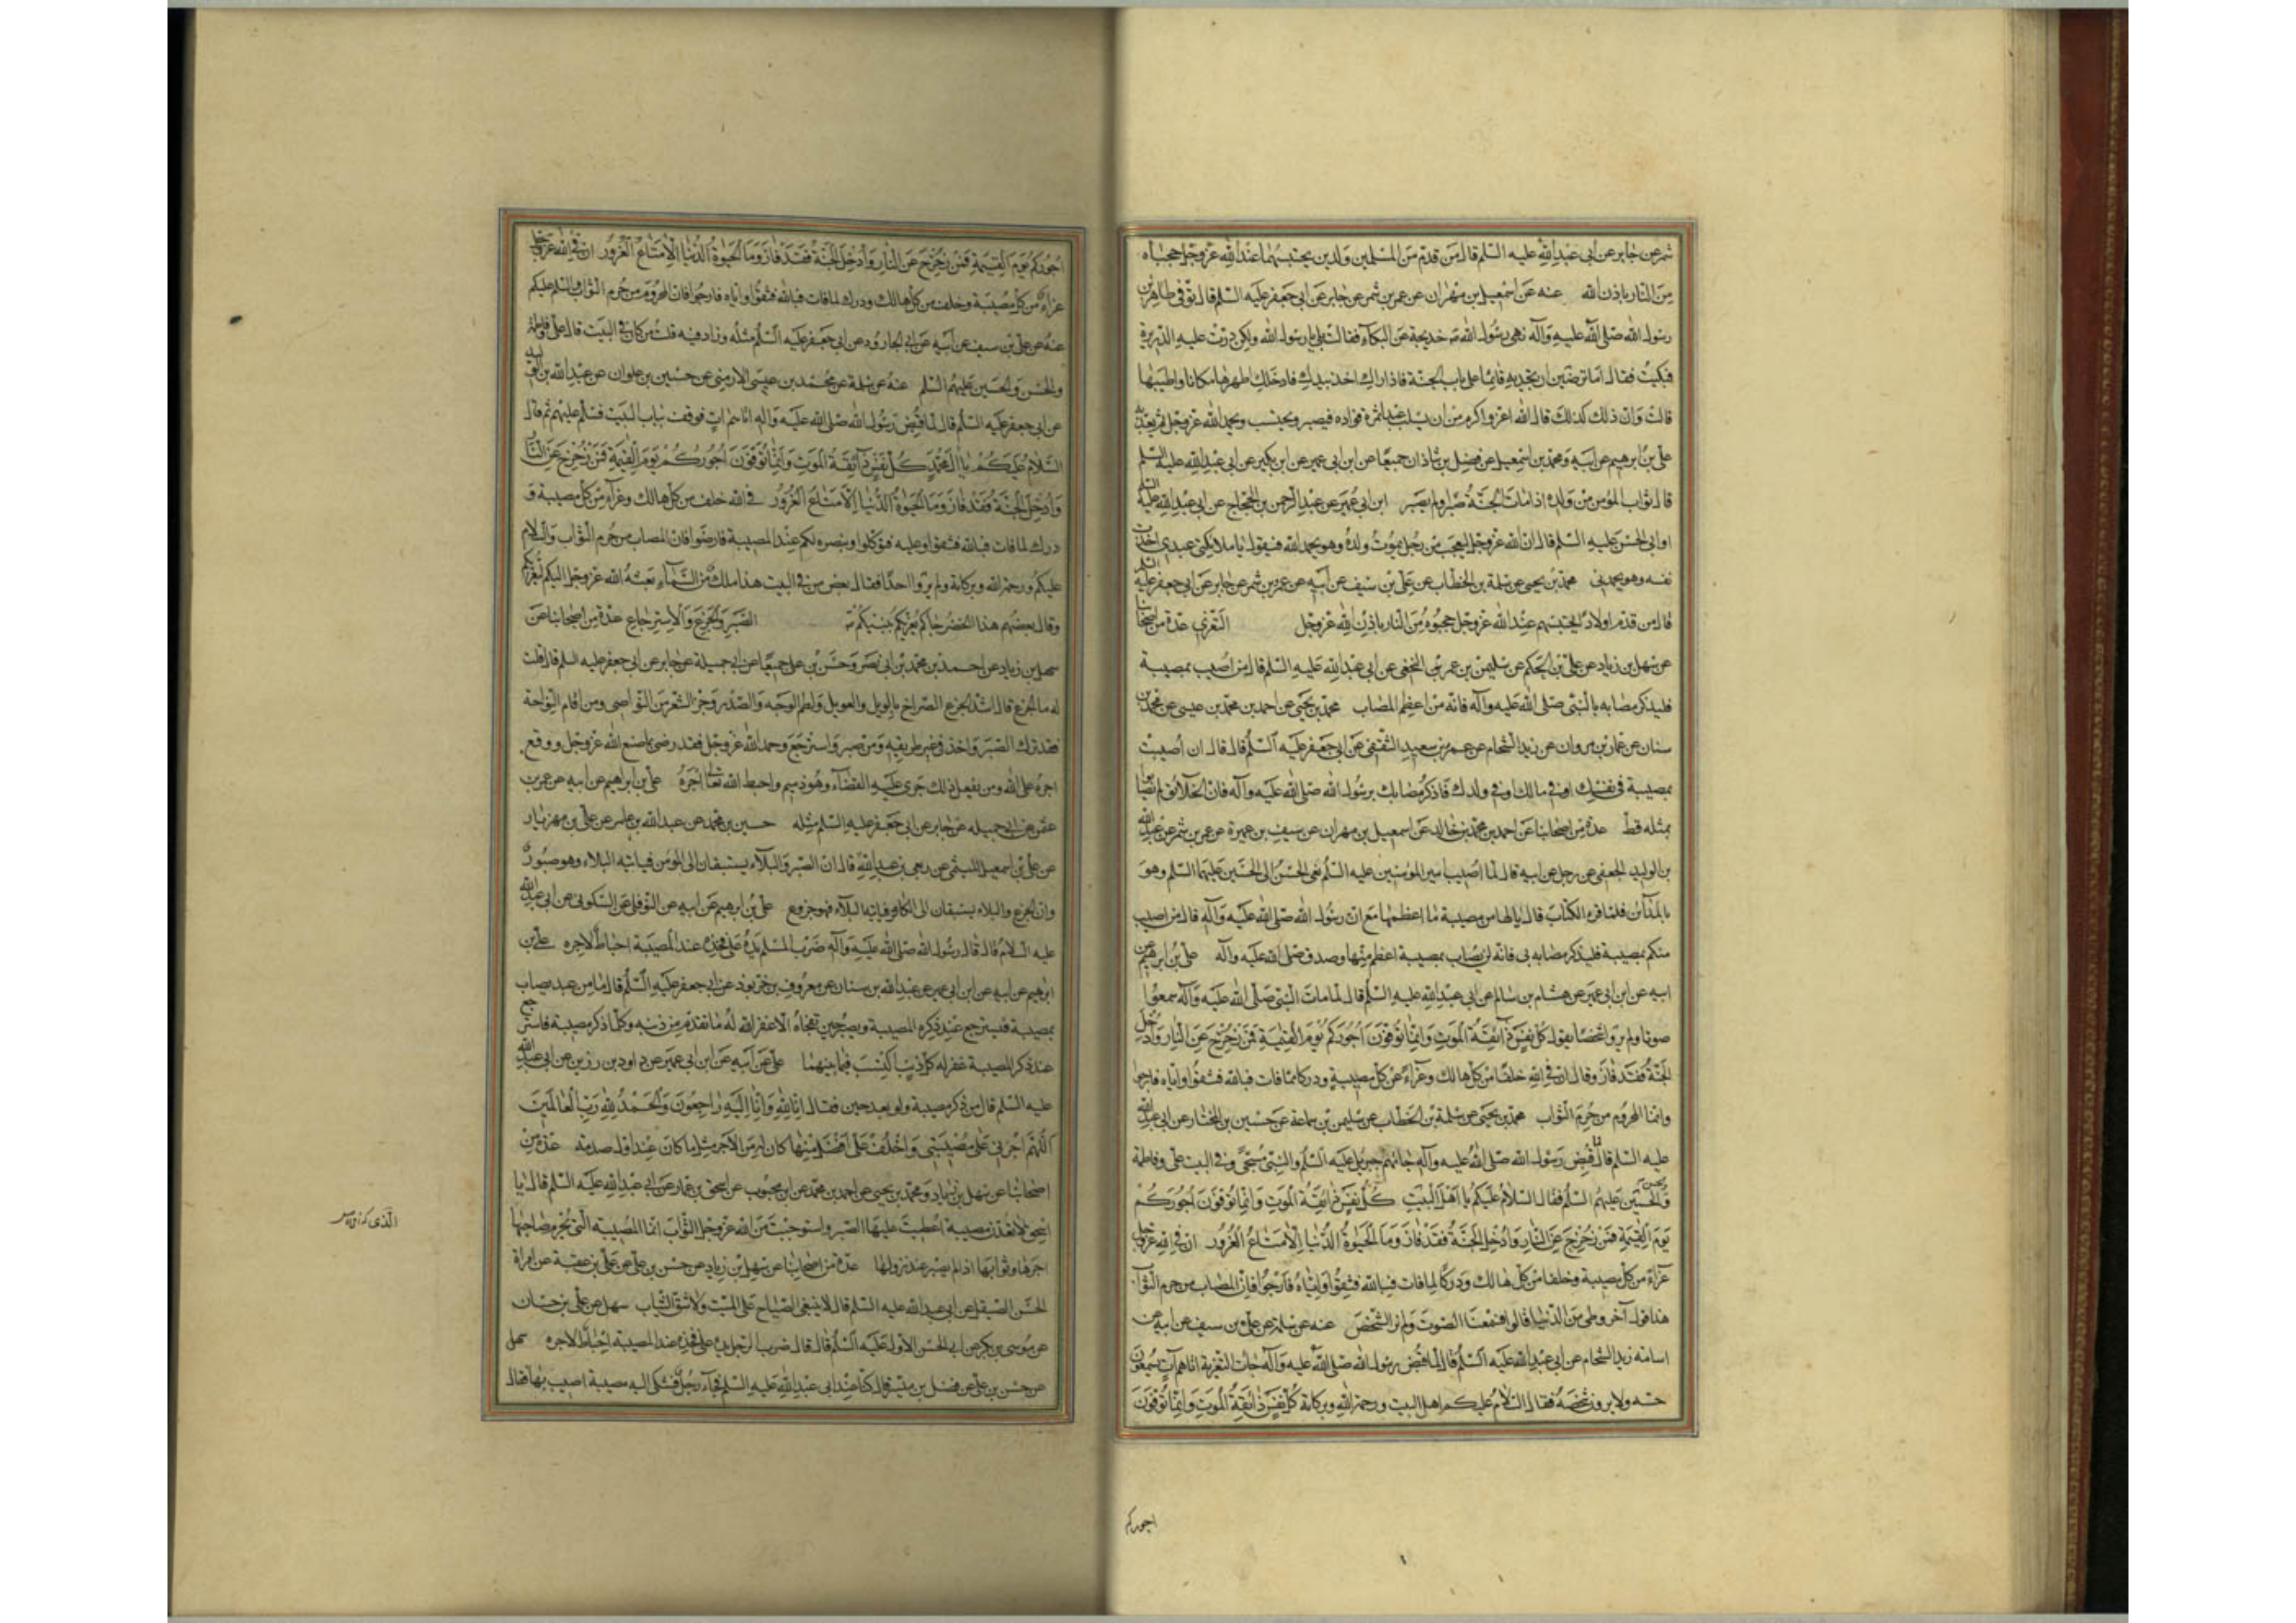 شمر عن جابر عن أبي عبد الله عليه السلم قال من قدم من المسلمين ولدين يحتسبهما عند الله عز وجل حجباه
من النار باذن الله عنه عن اسمعيل بن مهران عن عمرو بن شمر عن جابر عن ابي جعفر عليه السلم قال توفي طاهر بن
رسول الله صلى الله عليه وآله نهى رسول الله خديجة عن البكآء فقالت بلى يا رسول الله ولكن درت عليه الدريرة
فبكيت فقال اما ترضين ان تجديه قائما على باب الجنة فاذا راك اخذ بيدك فادخلك اطهرها مكانا واطيبها
قالت وان ذلك كذلك قال الله اعز واكرم من ان يسلب عبدا ثمرة فؤاده فيصبر ويحتسب ويحمد الله عز وجل ثم يعذبه
علي بن ابرهيم عن ابيه ومحمد بن اسمعيل عن فضل بن شاذان جميعا عن ابن ابي عمير عن ابن بكير عن ابي عبد الله عليه السلم
قال ثواب المؤمن من ولده اذا مات الجنة صبر او لم يصبر ابن ابي عمير عن عبد الرحمن بن الحجاج عن ابي عبد الله عليه السلم
او ابي الحسن عليه السلم قال ان الله عز وجل ليعجب من رجل يموت ولده وهو يحمد الله فيقول يا ملائكتي عبدي اخذت
نفسه وهو يحمدني محمد بن يحيى عن سلمة بن الخطاب عن علي بن سيف عن أبيه عن عمرو بن شمر عن جابر عن ابي جعفر عليه السلم
قال من قدم اولادا يحتسبهم عند الله عز وجل حجبوه من النار باذن الله عز وجل التعزي عدة من اصحابنا
عن سهل بن زياد عن علي بن الحكم عن سليمن بن عمرو النخعي عن ابي عبد الله عليه السلم قال من اصيب بمصيبة
فليذكر مصابه بالنبي صلى الله عليه وآله فانه من اعظم المصاب محمد بن يحيى عن احمد بن محمد بن عيسى عن محمد بن
سنان عن عمار بن مروان عن زيد الشحام عن عمرو بن سعيد الثقفي عن ابي جعفر عليه السلم قال قال ان أصبت
بمصيبة في نفسك او في مالك او في ولدك فاذكر مصابك برسول الله صلى الله عليه وآله فان الخلائق لم يصابوا
بمثله قط عدة من اصحابنا عن احمد بن محمد بن خالد عن اسمعيل بن مهران عن سيف بن عميرة عن عمرو بن شمر عن عبد الله
بن الوليد الجعفي عن رجل عن ابيه قال لما اصيب امير المؤمنين عليه السلم نعى الحسن الى الحسين عليهما السلم وهو
بالمدآئن فلما قرء الكتاب قال يا لها من مصيبة ما اعظمها مع ان رسول الله صلى الله عليه وآله قال من اصيب
منكم بمصيبة فليذكر مصابه بي فانه لن يصاب بمصيبة اعظم منها وصدق صلى الله عليه وآله علي بن ابرهيم عن
ابيه عن ابن ابي عمير عن هشام بن سالم عن ابي عبد الله عليه السلم قال لما مات النبي صلى الله عليه وآله سمعوا
صوتا ولم يروا شخصا يقول كل نفس ذائقة الموت وانما توفون أجوركم يوم القيمة فمن زحزح عن النار وأدخل
الجنة فقد فاز وقال ان في الله خلفا من كل هالك وعزآء من كل مصيبة ودركا مما فات فبالله فثقوا واياه فارجوا
وانما المحروم من حرم الثواب محمد بن يحيى عن سلمة بن الخطاب عن سليمن بن سماعة عن حسين بن المختار عن ابي عبد الله
عليه السلم قال لما قبض رسول الله صلى الله عليه وآله جائهم جبرئيل عليه السلم والنبي مسجى وفي البيت علي وفاطمة
والحسن والحسين عليهم السلم فقال السلام عليكم يا اهل البيت كل نفس ذائقة الموت وانما توفون أجوركم
يوم القيمة فمن زحزح عن النار وأدخل الجنة فقد فاز وما الحيوة الدنيا إلا متاع الغرور ان في الله عز وجل
عزاء من كل مصيبة وخلفا من كل هالك ودركا لما فات فبالله فثقوا واياه فارجوا فان المصاب من حرم الثواب
هذا اول آخر وطي من الدنيا قالوا فسمعنا الصوت ولم نر الشخص عنه عن سلمة عن علي بن سيف عن ابيه عن
اسامه زيد الشحام عن ابي عبد الله عليه السلم قال لما قبض رسول الله صلى الله عليه وآله جآئت التعزية اتاهم آت يسمعون
حسه ولا يرون شخصه فقال السلام عليكم اهل البيت ورحمة الله وبركاته كل نفس ذائقة الموت وانما توفون
اجوركم
اجوركم يوم القيمة فمن زحزح عن النار وأدخل الجنة فقد فاز وما الحيوة الدنيا الا متاع الغرور ان في الله عز وجل
عزاء من كل مصيبة وخلف من كل هالك ودرك لما فات فبالله فثقوا واياه فارجوا فان المحروم من حرم الثواب والسلم عليكم
عنه عن علي بن سيف عن أبيه عن ابي الجارود عن ابي جعفر عليه السلم مثله وزاد فيه قلت من كان في البيت قال علي وفاطمة
والحسن والحسين عليهم السلم عنه عن سلمة عن محمد بن عيسى الارمني عن حسين بن علوان عن عبد الله بن الوليد
عن ابي جعفر عليه السلم قال لما قبض رسول الله صلى الله عليه وآله اتاهم ات فوقف بباب البيت فسلم عليهم ثم قال
السلام عليكم يا آل محمد كل نفس ذآئقة الموت وانما توفون اجوركم يوم القيمة فمن زحزح عن النار
وأدخل الجنة فقد فاز وما الحيوة الدنيا إلا متاع الغرور في الله خلف من كل هالك وعزآء من كل مصيبة و
درك لما فات فبالله فثقوا وعليه فتوكلوا وبنصره لكم عند المصيبة فارضوا فان المصاب من حرم الثواب والسلام
عليكم ورحمة الله وبركاته ولم يروا احدا فقال بعض من في البيت هذا ملك من السمآء بعثه الله عز وجل اليكم ليعزيكم
وقال بعضهم هذا الخضر جآكم يعزيكم بنبيكم الصبر والجزع والاسترجاع عدة من اصحابنا عن
سهل بن زياد عن احمد بن محمد بن ابي نصر وحسن بن علي جميعا عن ابي جميلة عن جابر عن ابي جعفر عليه السلم قال قلت
له ما الجزع قال اشد الجزع الصراخ بالويل والعويل ولطم الوجه والصدر وجز الشعر من النواصي ومن اقام النواحة
فقد ترك الصبر واخذ في غير طريقه ومن صبر واسترجع وحمد الله عز وجل فقد رضي بما صنع الله عز وجل ووقع
اجره على الله ومن لم يفعل ذلك جرى عليه القضآء وهو ذميم واحبط الله تعالى اجره علي بن ابراهيم عن ابيه عن عمرو بن
عثمن عن ابي جميله عن جابر عن ابي جعفر عليه السلم مثله حسين بن محمد عن عبد الله بن عامر عن علي بن مهزيار
عن علي بن اسمعيل الميثمي عن ربعي بن عبد الله قال ان الصبر والبلآء يستبقان الى المؤمن فيأتيه البلاء وهو صبور
وان الجزع والبلاء يستبقان الى الكافر فيأتيه البلآء فهو جزوع علي بن ابرهيم عن ابيه عن النوفلي عن السكوني عن ابي عبد الله
عليه السلام قال قال رسول الله صلى الله عليه وآله ضرب المسلم يده على فخذه عند المصيبة احباط لاجره علي بن
ابرهيم عن ابيه عن ابن ابي عمير عن عبد الله بن سنان عن معروف بن خربوذ عن ابي جعفر عليه السلم قال ما من عبد يصاب
بمصيبة فيسترجع عند ذكره المصيبة ويصبر حين تفجأه الا غفر الله له ما تقدم من ذنبه وكلما ذكر مصيبة فاسترجع
عند ذكر المصيبة غفر له كل ذنب اكتسب فيما بينهما علي عن أبيه عن ابن ابي عمير عن داود بن رزين عن ابي عبد الله
عليه السلم قال من ذكر مصيبة ولو بعد حين فقال انا لله وانا اليه راجعون والحمد لله رب العالمين
اللهم اجرني على مصيبتي واخلف علي افضل منها كان له من الاجر مثل ما كان عند اول صدمة عدة من
اصحابنا عن سهل بن زياد ومحمد بن يحيى عن احمد بن محمد عن ابن محبوب عن اسحق بن عمار عن ابي عبد الله عليه السلم قال يا
اسحق لا تعدن مصيبة اعطيت عليها الصبر واستوجبت من الله عز وجل الثواب انما المصيبه التي يحرم صاحبها
اجرها وثوابها اذا لم يصبر عند نزولها عدة من اصحابنا عن سهل بن زياد عن حسن بن علي عن علي بن عقبة عن امرأة
الحسن الصيقل عن ابي عبد الله عليه السلم قال لا ينبغي الصياح على الميت ولا شق الثياب سهل عن علي بن حسان
عن موسى بن بكر عن ابي الحسن الاول عليه السلم قال قال ضرب الرجل يده على فخذه عند المصيبة احباط لاجره سهل
عن حسن بن علي عن فضل بن ميسر قال كنا عند ابي عبد الله عليه السلم فجآء رجل فشكى اليه مصيبة اصيب بها فقال